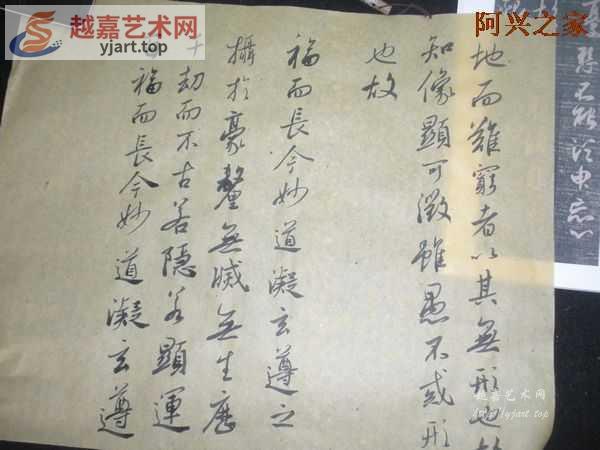 越嘉艺术网
yjart.top
阿兴之家
地而難窮者以其無形也故
知像顯可徵雖愚不惑形
也故
福而長今妙道凝玄遵之
攝於豪釐無滅無生歷
十劫而不古若隱若顯運
福而長今妙道凝玄遵
越嘉艺术网
http://yjart.top